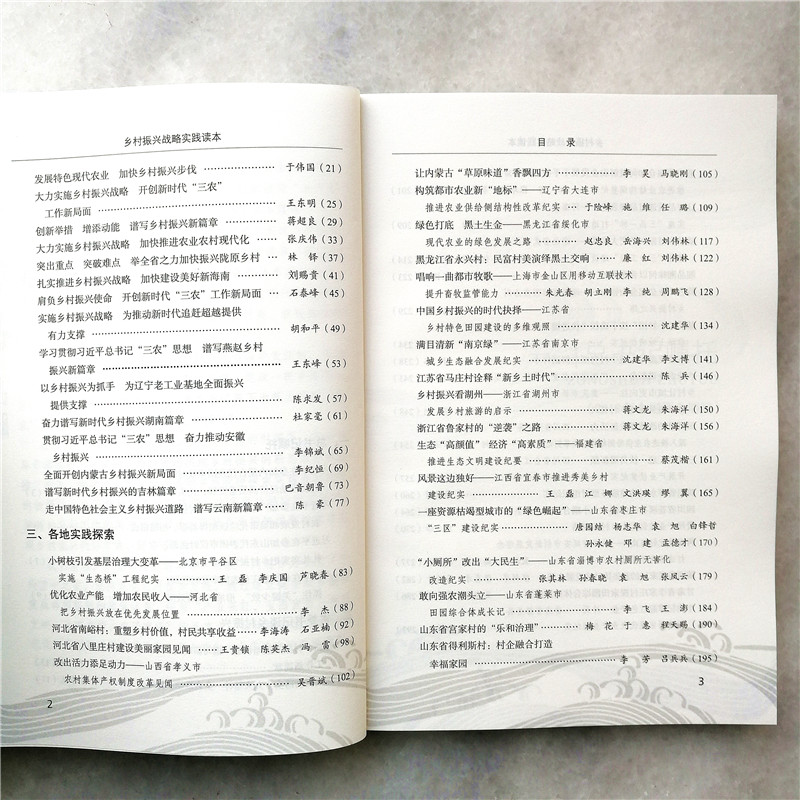 乡村振兴战略实践读本
发展特色现代农业　加快乡村振兴步伐 …… 于伟国（21）
大力实施乡村振兴战略　开创新时代“三农”
工作新局面 …… 王东明（25）
创新举措　增添动能　谱写乡村振兴新篇章 …… 蒋超良（29）
大力实施乡村振兴战略　加快推进农业农村现代化 …… 张庆伟（33）
突出重点　突破难点　举全省之力加快振兴陇原乡村 …… 林　铎（37）
扎实推进乡村振兴战略　加快建设美好新海南 …… 刘赐贵（41）
肩负乡村振兴使命　开创新时代“三农”工作新局面 …… 石泰峰（45）
实施乡村振兴战略　为推动新时代追赶超越提供
有力支撑 …… 胡和平（49）
学习贯彻习近平总书记“三农”思想　谱写燕赵乡村
振兴新篇章 …… 王东峰（53）
以乡村振兴为抓手　为辽宁老工业基地全面振兴
提供支撑 …… 陈求发（57）
奋力谱写新时代乡村振兴湖南篇章 …… 杜家毫（61）
贯彻习近平总书记“三农”思想　奋力推动安徽
乡村振兴 …… 李锦斌（65）
全面开创内蒙古乡村振兴新局面 …… 李纪恒（69）
谱写新时代乡村振兴的吉林篇章 …… 巴音朝鲁（73）
走中国特色社会主义乡村振兴道路　谱写云南新篇章 …… 陈　豪（77）
三、各地实践探索
小树枝引发基层治理大变革——北京市平谷区
实施“生态桥”工程纪实 …… 王　磊　李庆国　芦晓春（83）
优化农业产能　增加农民收入——河北省
把乡村振兴放在优先发展位置 …… 李　杰（88）
河北省南峪村：重塑乡村价值，村民共享收益 …… 李海涛　石亚楠（92）
河北省八里庄村建设美丽家园见闻 …… 王贵锁　陈英杰　冯　雷（98）
改出活力添足动力——山西省孝义市
农村集体产权制度改革见闻 …… 吴晋斌（102）
2
目　录
让内蒙古“草原味道”香飘四方 …… 李　昊　马晓刚（105）
构筑都市农业新“地标”——辽宁省大连市
推进农业供给侧结构性改革纪实 …… 于险峰　施　维　任　璐（109）
绿色打底　黑土生金——黑龙江省绥化市
现代农业的绿色发展之路 …… 赵忠良　岳海兴　刘伟林（117）
黑龙江省永兴村：民富村美演绎黑土交响 …… 廉　红　刘伟林（122）
唱响一曲都市牧歌——上海市金山区用移动互联技术
提升畜牧监管能力 …… 朱光春　胡立刚　李　纯　周鹏飞（128）
中国乡村振兴的时代抉择——江苏省
乡村特色田园建设的多维观照 …… 沈建华（134）
满目清新“南京绿”——江苏省南京市
城乡生态融合发展纪实 …… 沈建华　李文博（141）
江苏省马庄村诠释“新乡土时代” …… 陈　兵（146）
乡村振兴看湖州——浙江省湖州市
发展乡村旅游的启示 …… 蒋文龙　朱海洋（150）
浙江省鲁家村的“逆袭”之路 …… 蒋文龙　朱海洋（156）
生态“高颜值”　经济“高素质”——福建省
推进生态文明建设纪要 …… 蔡茂楷（161）
风景这边独好——江西省宜春市推进秀美乡村
建设纪实 …… 王　磊　江　娜　文洪瑛　缪　翼（165）
一座资源枯竭型城市的“绿色崛起”——山东省枣庄市
“三区”建设纪实 …… 唐园结　杨志华　袁　旭　白锋哲
孙永健　邓　建　孟德才（170）
“小厕所”改出“大民生”——山东省淄博市农村厕所无害化
改造纪实 …… 张其林　孙春晓　袁　旭　张凤云（179）
敢向强农潮头立——山东省蓬莱市
田园综合体成长记 …… 李　飞　王　澎（184）
山东省宫家村的“乐和治理” …… 梅　花　于　惠　程天赐（190）
山东省得利斯村：村企融合打造
幸福家园 …… 李　芳　吕兵兵（195）
3